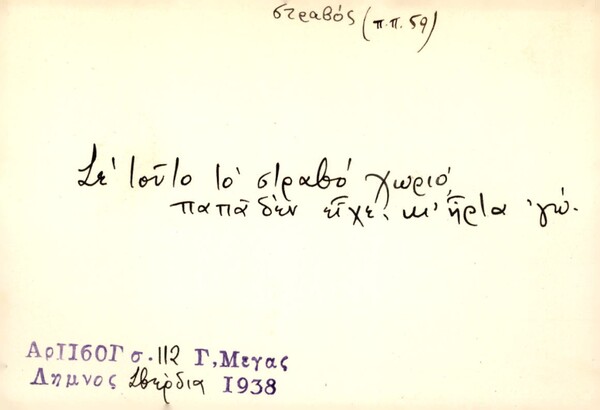 στραβός (π.π. 59)
Σε' τοῦτο το' στραβό χωριό,
παπᾶ δὲν εἶχε, κι' ἦρτα 'γώ.
Αρ1160Γ σ. 112 Γ, Μεγας
Λημνος Σβέρδια 1938